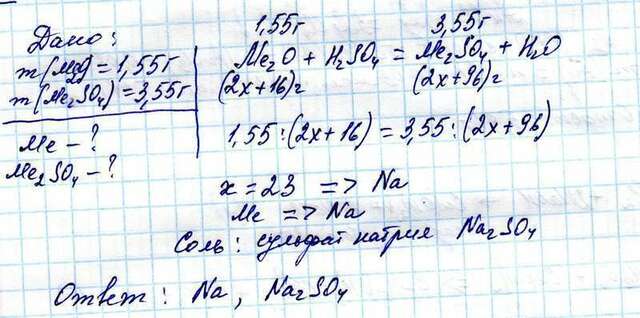 Дано:
m(Me2O) = 1,55г
m(Me2SO4) = 3,55г
Me - ?
Me2SO4 - ?
1,55г 3,55г
Me2O + H2SO4 = Me2SO4 + H2O
(2x+16)г (2x+96)г
1,55 : (2x+16) = 3,55 : (2x+96)
x = 23 => Na
Me => Na
Соль: сульфат натрия Na2SO4
Ответ: Na, Na2SO4